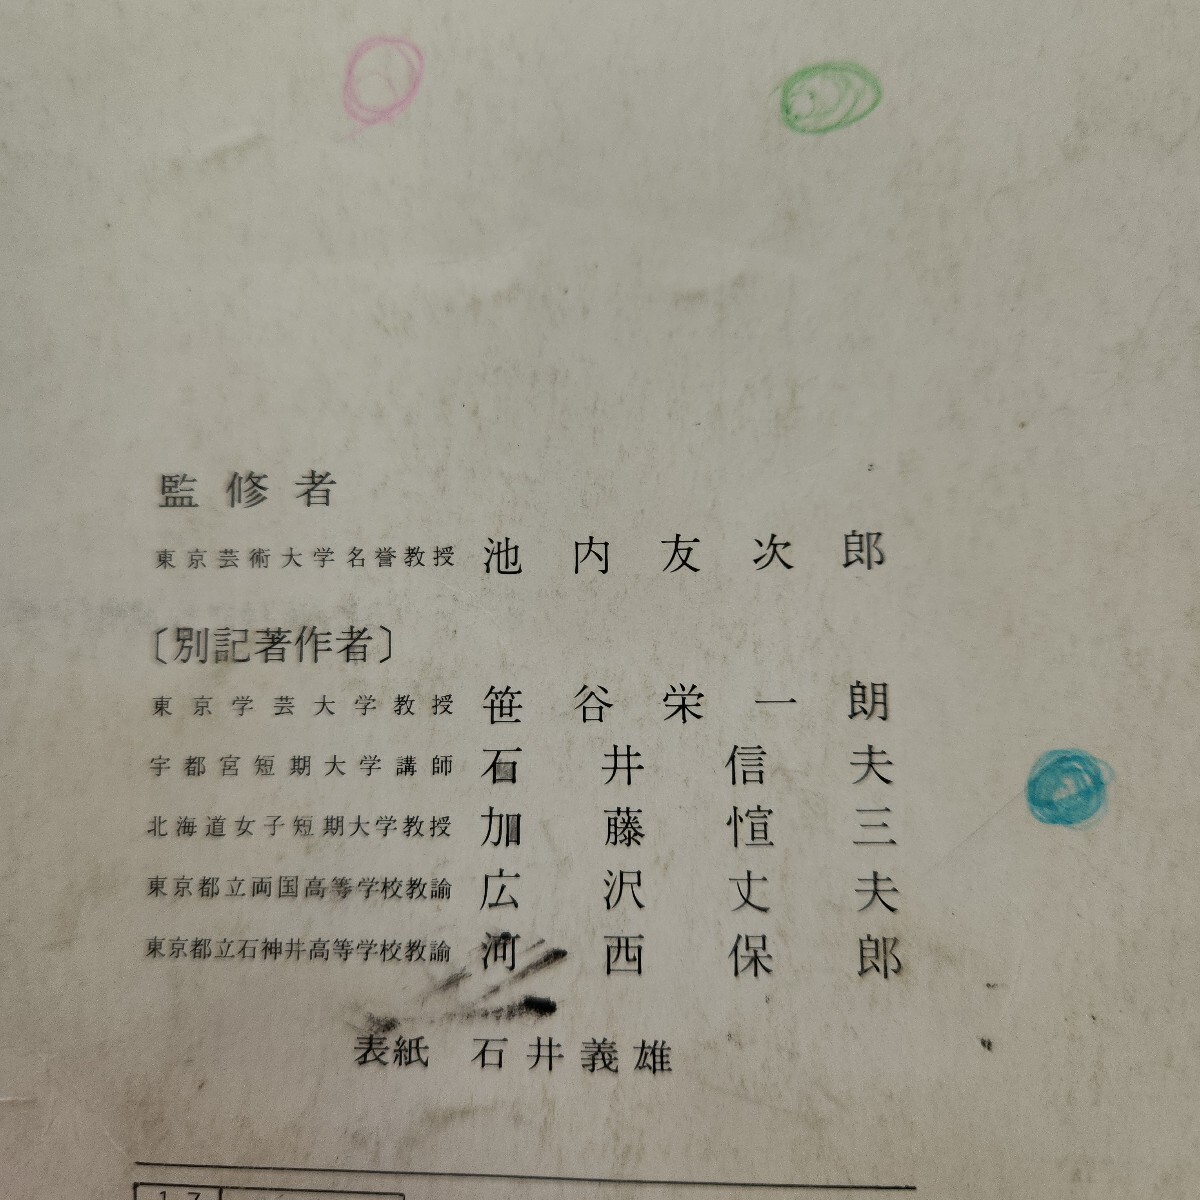 監修者
東京芸術大学名誉教授 池内友次郎
〔別記著作者〕
東京学芸大学教授 笹谷栄一朗
宇都宮短期大学講師 石井信夫
北海道女子短期大学教授 加藤愃三
東京都立両国高等学校教諭 広沢丈夫
東京都立石神井高等学校教諭 河西保郎
表紙 石井義雄
17